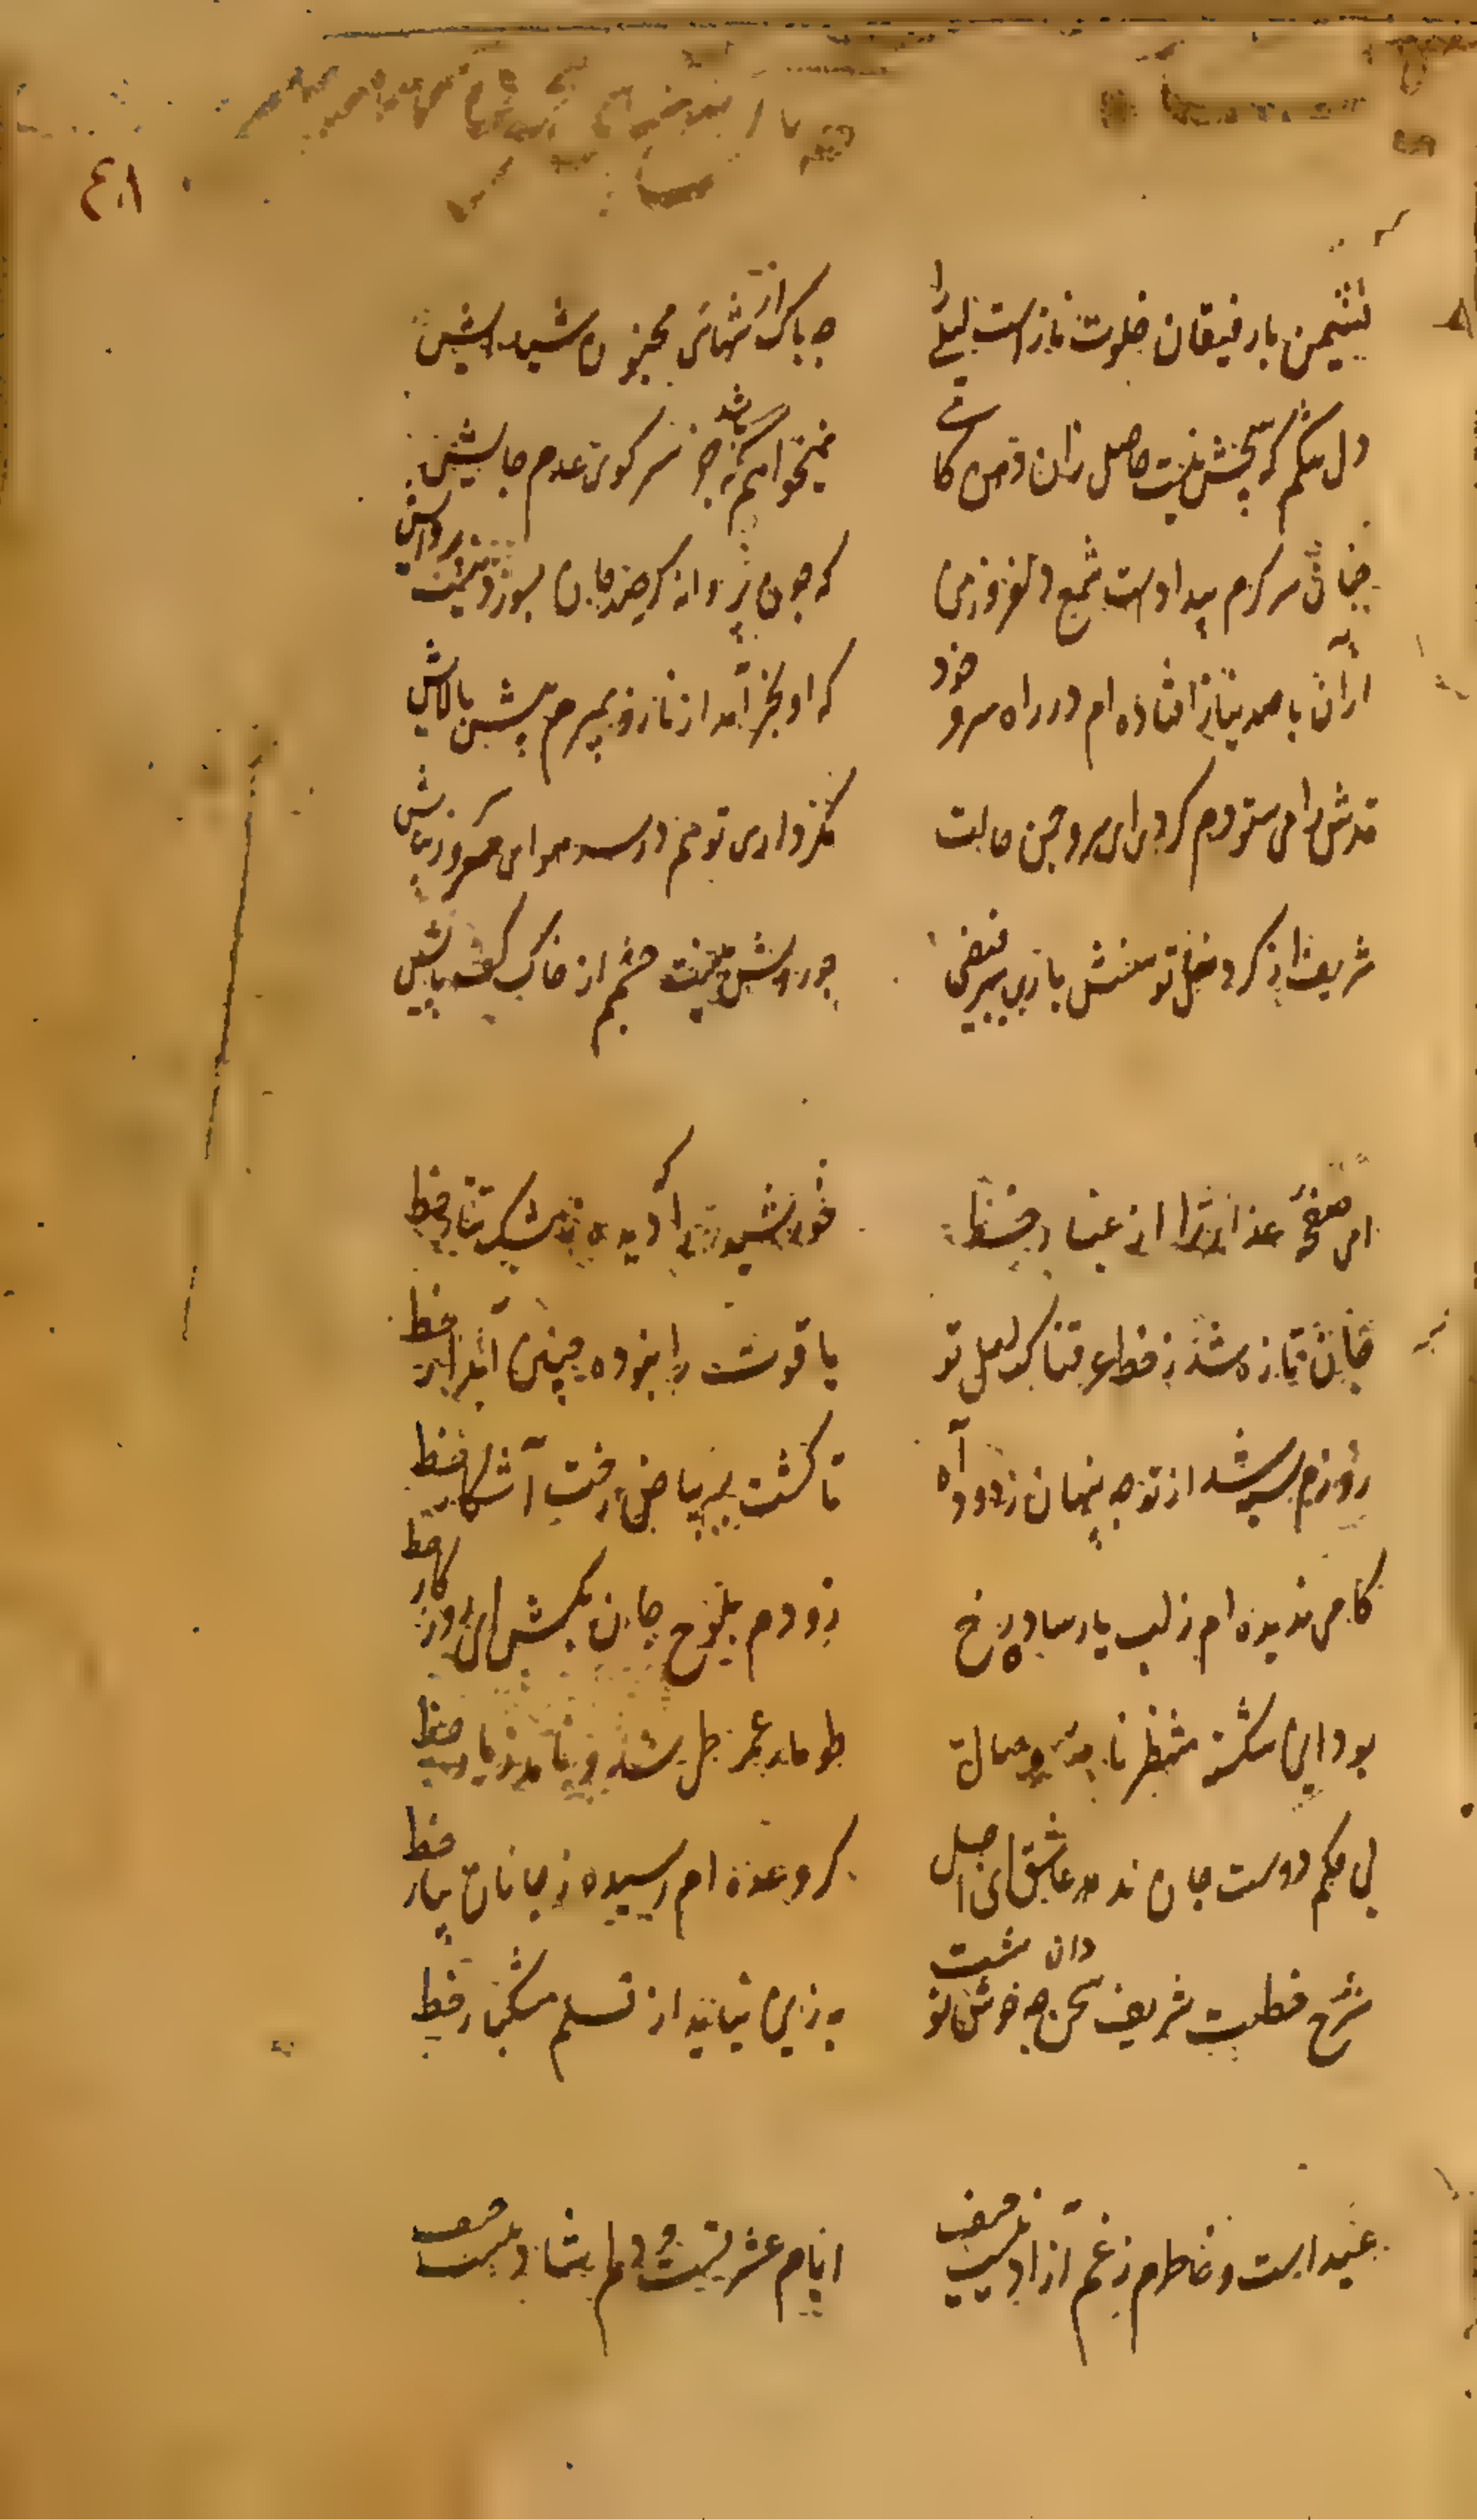 ٤٠١
نشیمن با رفیقان خلوت ناز است لیلی را
چه باک از مجنون شیدایش
دل تنگم که نیست حاصل زان دهن کامش
نمیخواهم که باشد جز سر کوی عدم جایش
چنان سر کرم بیداد است شمع دلفروز من
که چون پروانه کر صد جان بسوزد نیست پروایش
از آن با صد نیاز افتاده ام در راه سرو خود
که او بخرامد از ناز و بمیرم پیش بالایش
قدش را می ستودم کردی ای سرو چمن حالت
مکر داری تو هم در سر هوای سرو رعنایش
شریف از کرد نعل توسنش باری ببر فیضی
چو روشن نیست چشم از خاک کف پایش
ای صفحه عذار ترا از غبار خط
خورشید را که دیده ز مشک تتار خط
جان تازه شد ز خط عرقناک لعل تو
یاقوت را نبوده چنین آبدار خط
روزم سیه شد از تو چه پنهان ز دود آه
تا کشت بر بیاض رخت آشکار خط
کامی ندیده ام ز لب یار ساده رخ
زودم بلوح جان بکش ای روزکار خط
بود این شکسته منتظر نامه وصال
طومار عمر طی شد و نامد ز یار خط
بی حکم دوست جان ندهد عاشق ای اجل
کر وعده ام رسیده ز جانان بیار خط
شرح خطت شریف سخن دان چه خوش نوشت
به زین نیاید از قلم مشکبار خط
عید است و خاطرم ز غم آزاد نیست حیف
ایام عشرتست و دلم شاد نیست حیف